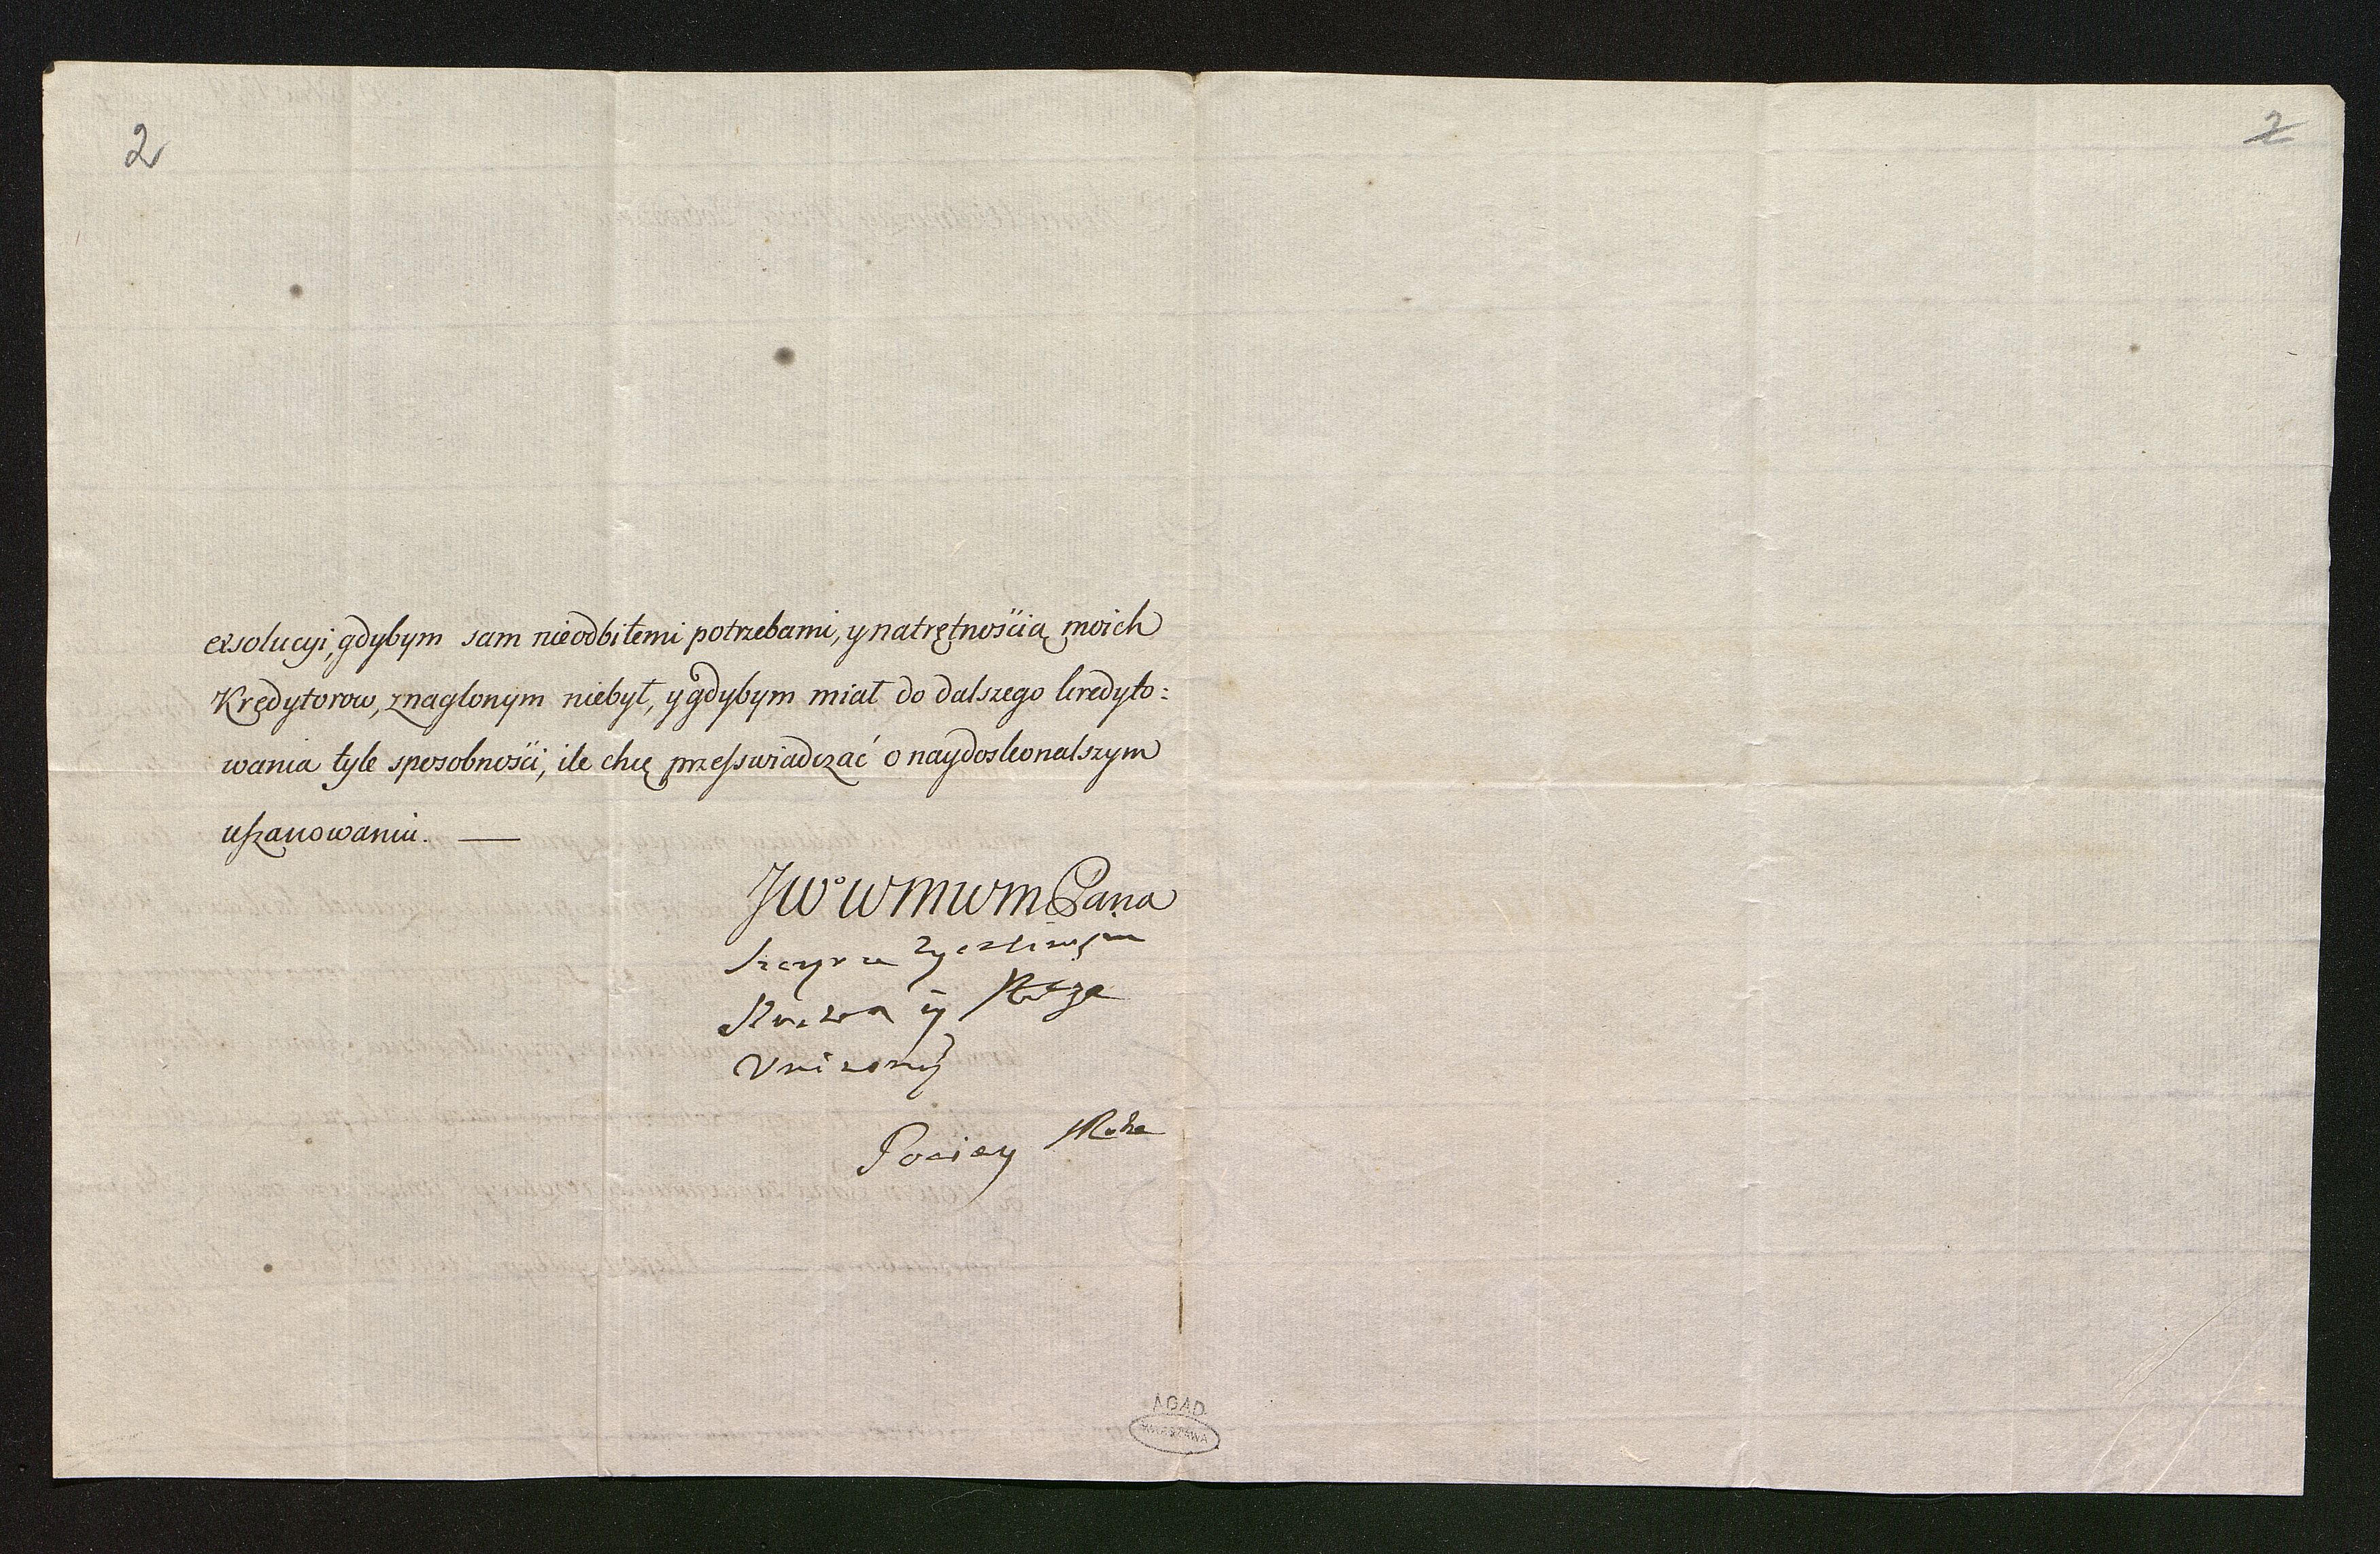 2
2
exsolucyi, gdybym sam nieodbitemi potrzebami, y natrętnością moich
Kredytorow, znaglonym niebył, y gdybym miał do dalszego kredyto:
wania tyle sposobności, ile chcę przeſswiadczać o naydoskonalszym
uſzanowaniu. —
JWo WMWM Pana
Unizony
Pociey
AGAD
WARSZAWA